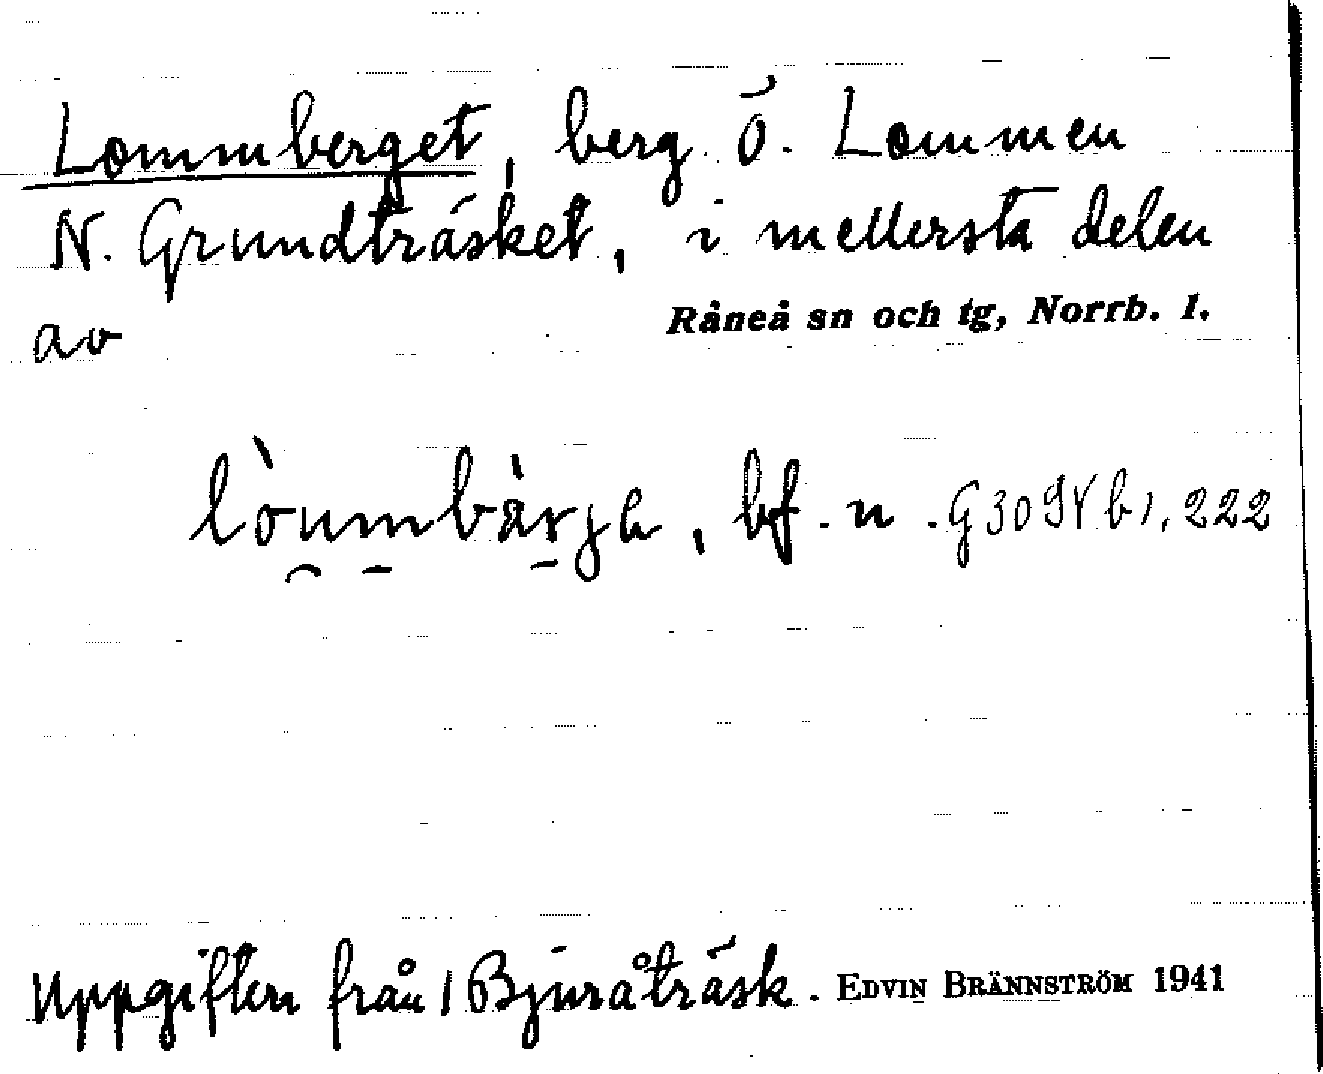 Lommberget, berg Ö. Lommen
N. Grundträsket, i mellersta delen
av Råneå sn och tg, Norrb. l.
bf. n. 222
Uppgiften från Bjuråträsk. EDVIN BRÄNNSTRÖM 1941